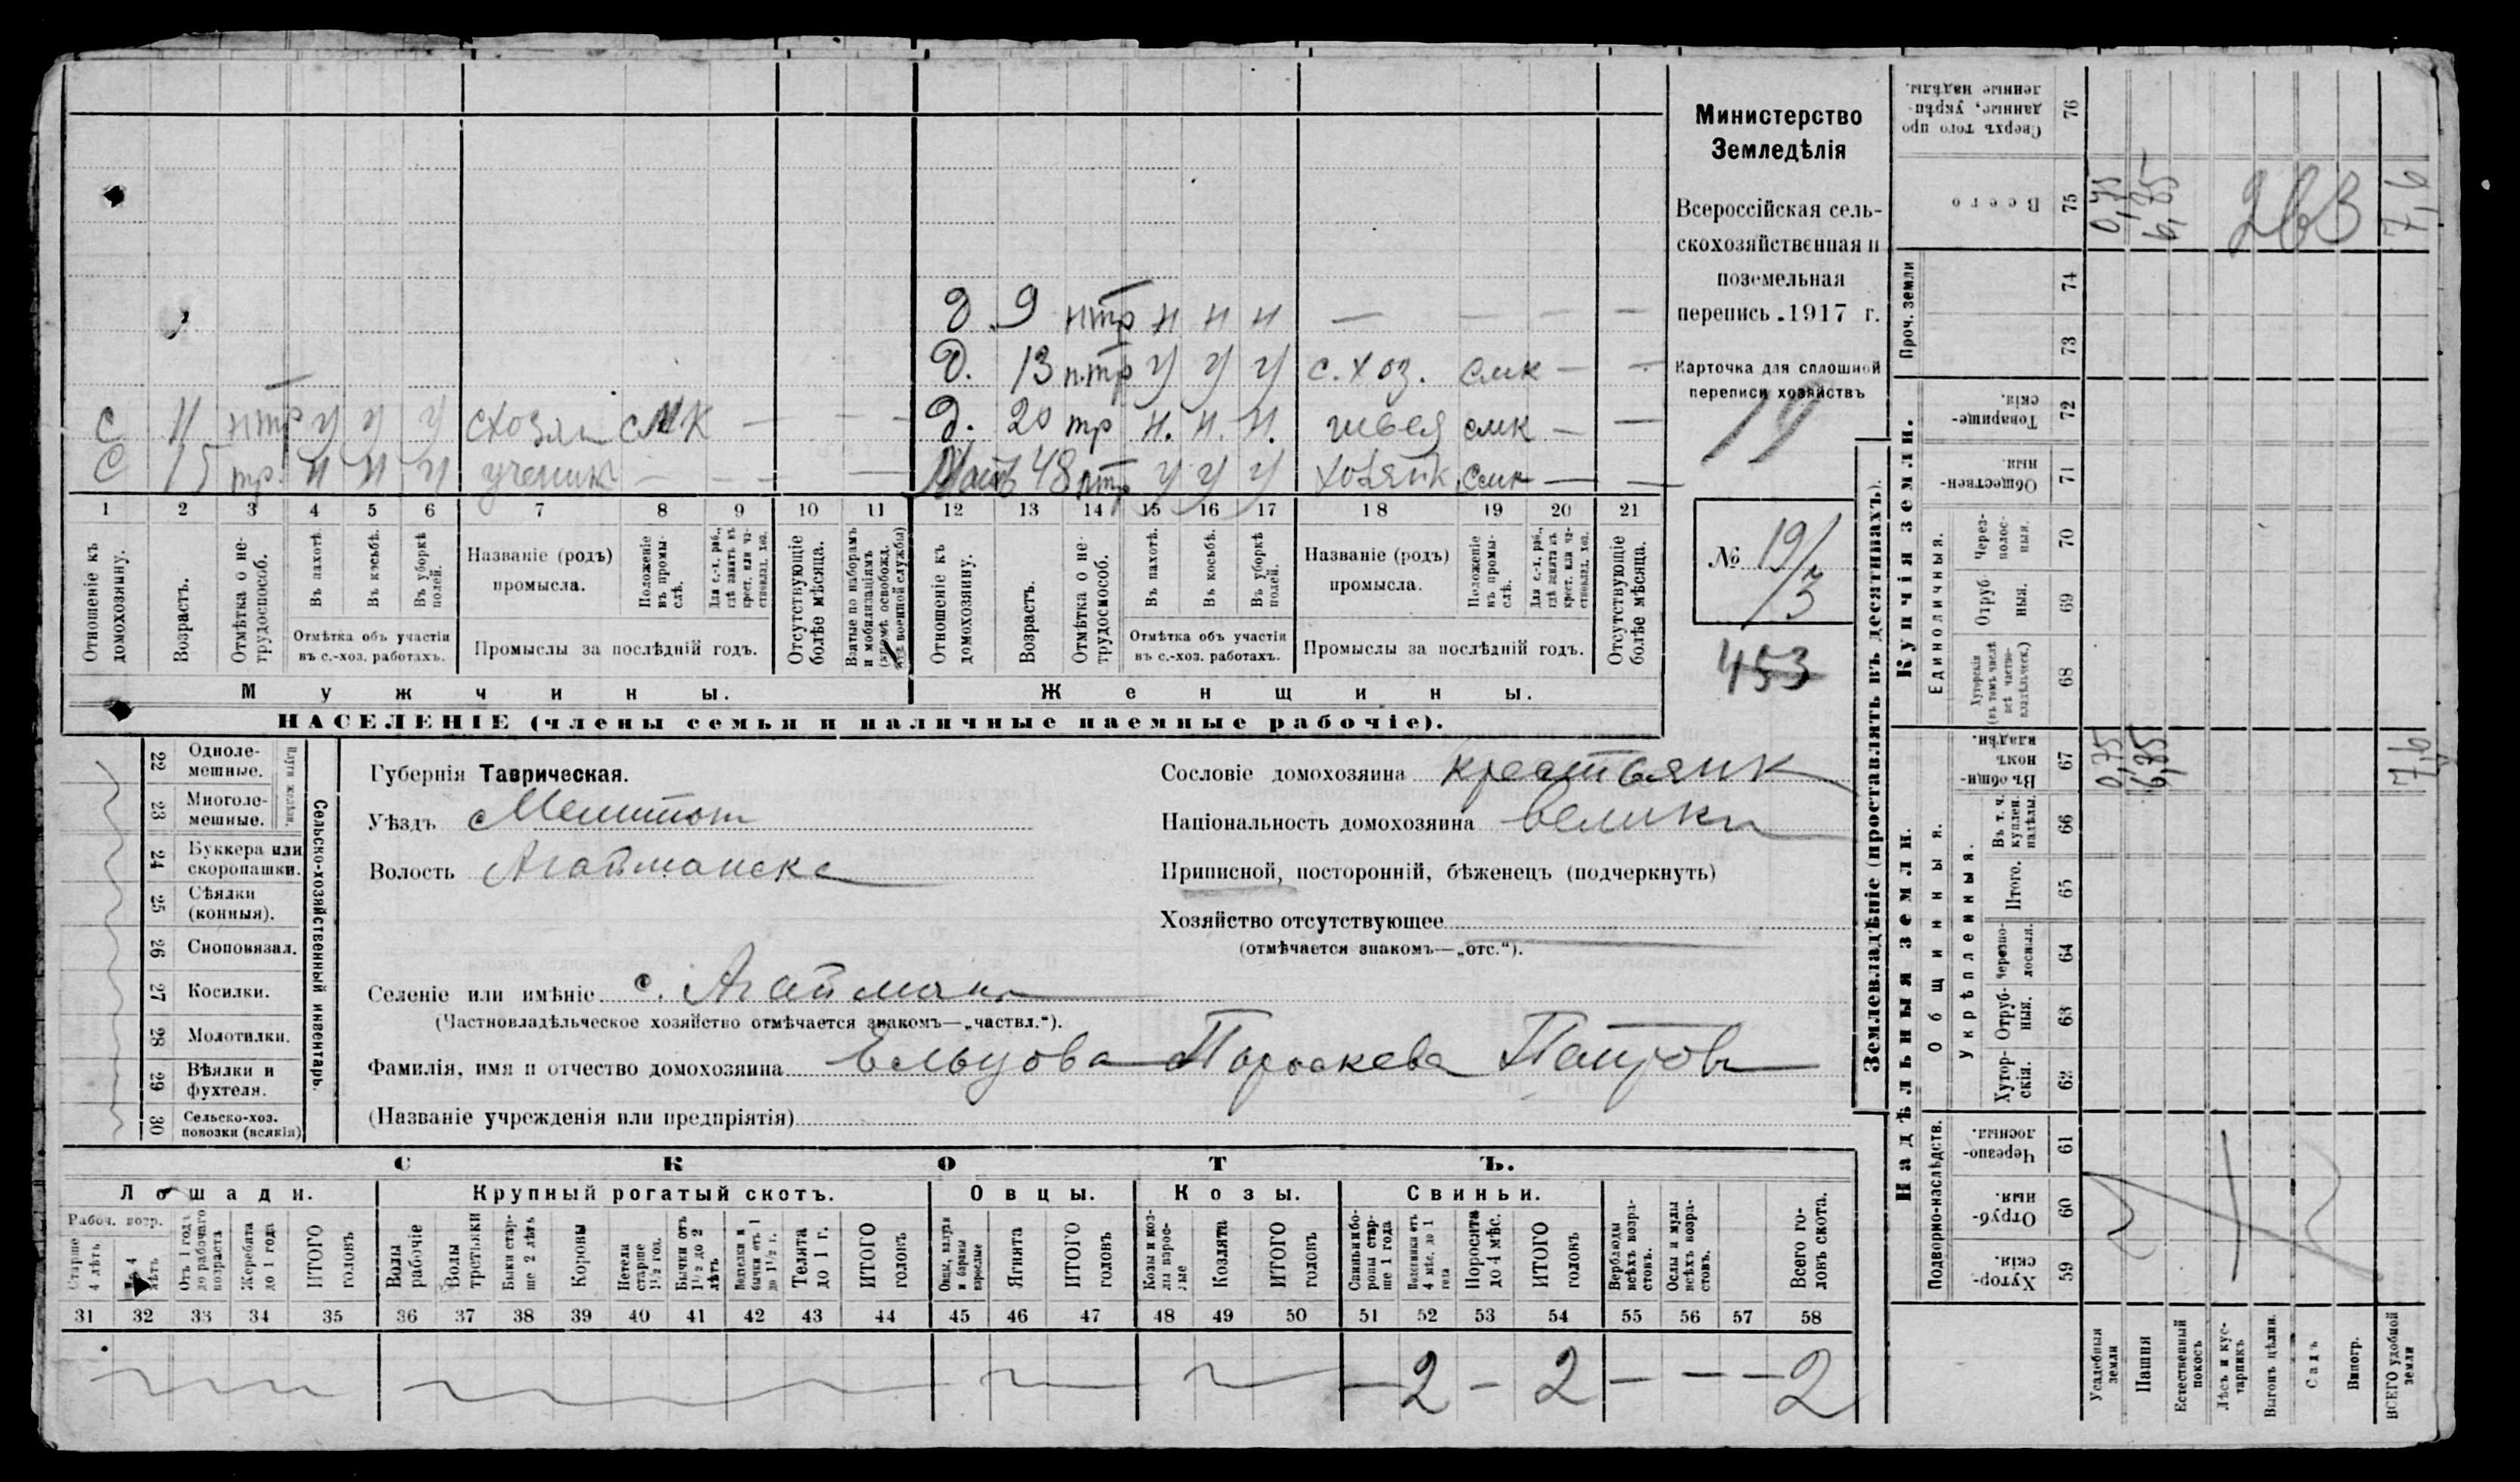 д. 9 нтр н н н — — — —
д. 13 нтр у у у с.хоз. смк — —
с 11 нтр у у у схозя смк — — —
д. 20 тр н. н. н. швея смк — —
с 15 тр. н н н ученик — — — —
мать 48 нтр у у у хозяйк смк — —
1 2 3 4 5 6 7 8 9 10 11 12 13 14 15 16 17 18 19 20 21
Отношеніе къ домохозяину.
Возрастъ.
Отмѣтка о не-трудоспособ.
Въ пахотѣ.
Въ косьбѣ.
Въ уборкѣ полей.
Отмѣтка объ участіи
въ с.-хоз. работахъ.
Названіе (родъ)
промысла.
Положеніе въ промы-слѣ.
Для с.-х. раб., гдѣ занятъ въ крест. или ча-стновлад. хоз.
Промыслы за послѣдній годъ.
Отсутствующіе болѣе мѣсяца.
Взятые по наборамъ и мобилизаціямъ (кромѣ освобожд. отъ военной службы)
Отношеніе къ домохозяину.
Возрастъ.
Отмѣтка о не-трудоспособ.
Въ пахотѣ.
Въ косьбѣ.
Въ уборкѣ полей.
Отмѣтка объ участіи
въ с.-хоз. работахъ.
Названіе (родъ)
промысла.
Положеніе въ промы-слѣ.
Для с.-х. раб., гдѣ занята въ крест. или ча-стновлад. хоз.
Промыслы за послѣдній годъ.
Отсутствующіе болѣе мѣсяца.
Мужчины. Женщины.
НАСЕЛЕНІЕ (члены семьи и наличные наемные рабочіе).
Министерство
Земледѣлія
Всероссійская сель-
скохозяйственная и
поземельная
перепись 1917 г.
Карточка для сплошной
переписи хозяйствъ
19
№ 19/3
453
22 Одноле-мешные.
23 Многоле-мешные.
Плуги желѣзн.
24 Буккера или скоропашки.
25 Сѣялки (конныя).
26 Сноповязал.
27 Косилки.
28 Молотилки.
29 Вѣялки и фухтеля.
30 Сельско-хоз. повозки (всякія)
Сельско-хозяйственный инвентарь.
Губернія Таврическая.
Уѣздъ Мелитоп
Волость Агайманска
Селеніе или имѣніе с. Агайман
(Частновладѣльческое хозяйство отмѣчается знакомъ—„частвл.“).
Фамилія, имя и отчество домохозяина Ельцова Пораскева Петров
(Названіе учрежденія или предпріятія)
Сословіе домохозяина крестьянк
Національность домохозяина велик
Приписной, посторонній, бѣженецъ (подчеркнуть)
Хозяйство отсутствующее
(отмѣчается знакомъ—„отс.“).
СКОТЪ.
Лошади. Крупный рогатый скотъ. Овцы. Козы. Свиньи.
Рабоч. возр.
Старше 4 лѣтъ
До 4 лѣтъ
Отъ 1 года до рабочаго возраста
Жеребята до 1 года
ИТОГО головъ
Волы рабочіе
Волы третьяки
Быки стар-ше 2 лѣтъ
Коровы
Нетели старше 1½ год.
Бычки отъ 1½ до 2 лѣтъ
Подтелки и бычки отъ 1 до 1½ г.
Телята до 1 г.
ИТОГО головъ
Овцы, валухи и бараны взрослые
Ягнята
ИТОГО головъ
Козы и коз-лы взрос-лые
Козлята
ИТОГО головъ
Свиньи и бо-ровы стар-ше 1 года
Подсвинки отъ 4 мѣс. до 1 года
Поросята до 4 мѣс.
ИТОГО головъ
Верблюды всѣхъ возра-стовъ.
Ослы и мулы всѣхъ возра-стовъ.
Всего го-ловъ скота.
31 32 33 34 35 36 37 38 39 40 41 42 43 44 45 46 47 48 49 50 51 52 53 54 55 56 57 58
— 2 — 2 — — — 2
Землевладѣніе (проставлять въ десятинахъ).
Надѣльныя земли. Купчія земли. Проч. земли
Подворно-наслѣдств.
Общинныя.
Укрѣпленныя.
Единоличныя.
59 Хутор-скія.
60 Отруб-ныя.
61 Черезпо-лосныя.
62 Хутор-скія.
63 Отруб-ныя.
64 Черезпо-лосныя.
65 Итого.
66 Въ т. ч. куплен. надѣлы.
67 Въ общин-номъ владѣн.
68 Хуторскія (въ томъ числѣ всѣ частно-владѣльческ.)
69 Отруб-ныя.
70 Через-полос-ныя.
71 Обществен-ныя.
72 Товарище-скія.
73
74
75 Всего
76 Сверхъ того про-данные, укрѣп-ленные надѣлы.
Усадебныя земли 0,75 0,75
Пашня 6,85 6,85
Естественный покосъ
Лѣсъ и кус-тарникъ
Выгонъ цѣлин.
Садъ
Виногр.
ВСЕГО удобной земли 7,6 7,6
263